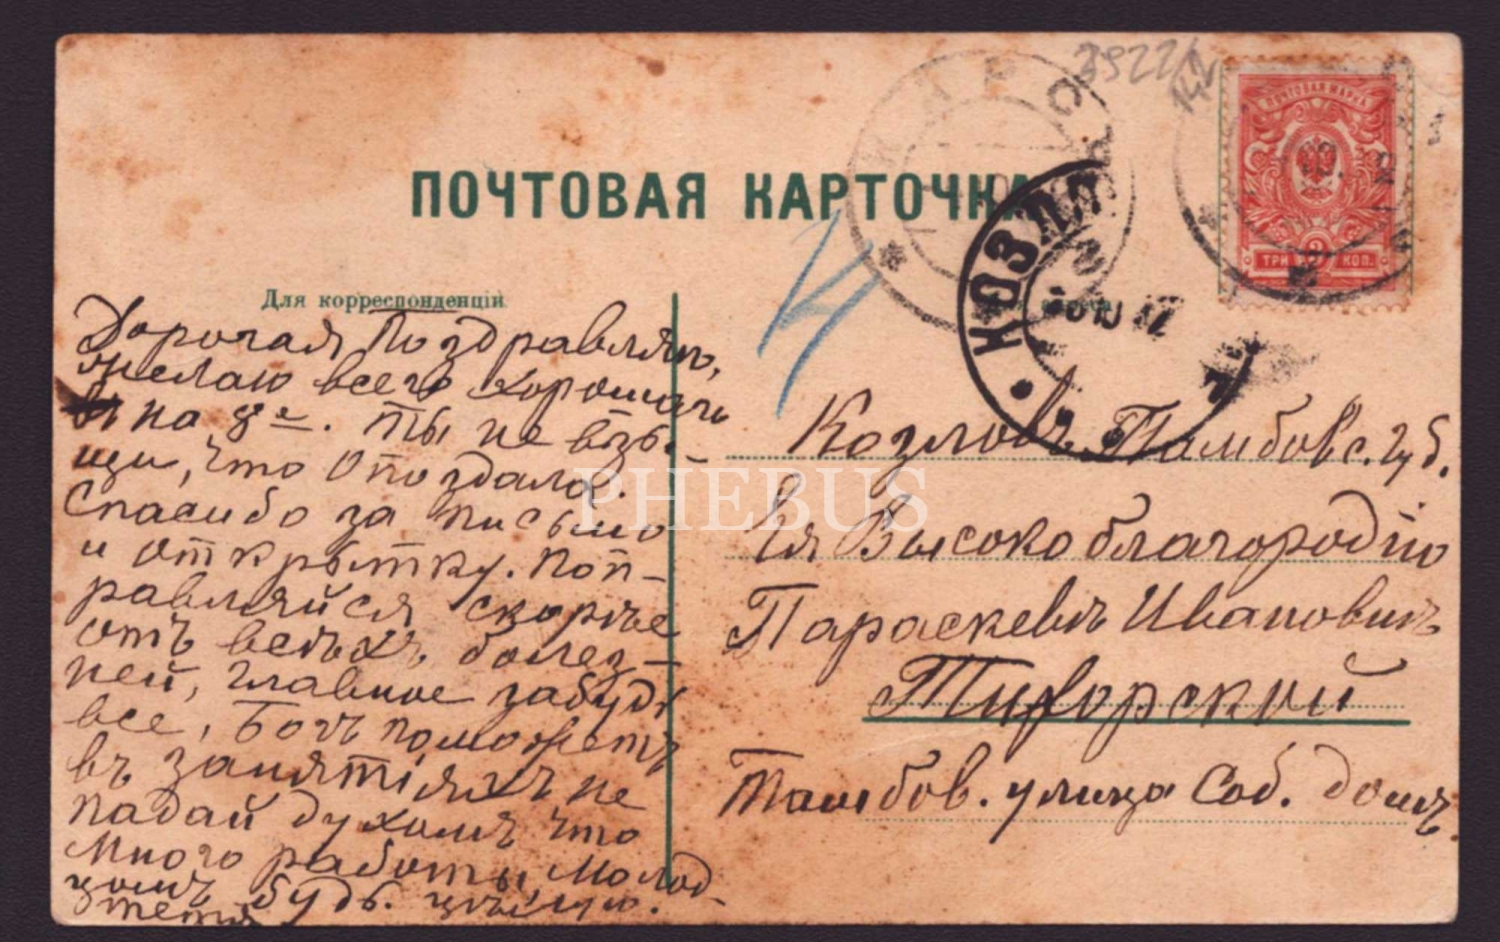 ПОЧТОВАЯ КАРТОЧКА
Для корреспонденціи
Дорогая Поздравляю,
желаю всего хорошаго
на 8е. Ты не взы-
щи, что опоздала.
Спасибо за письмо
и открытку. Поп-
равляйся скорѣе
отъ всѣхъ болез-
ней, главное забудь
все, Богъ поможетъ
въ занятіяхъ не
падай духомъ что
много работы, молод
цомъ будь. цѣлую.
тетя
Козловъ Тамбовс. губ.
Ея Высокоблагородію
Параскевѣ Ивановнѣ
Тихорской
Тамбов. улица Соб. домъ.
ПОЧТОВАЯ МАРКА
ТРИ 3 КОП.
КОЗЛО
PHEBUS